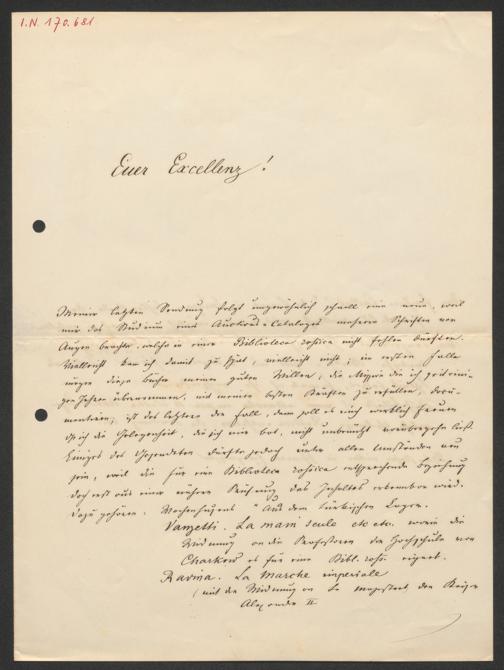 I.N. 170.681
Euer Excellenz!
Meiner letzten Sendung folgt ungewöhnlich schnell eine neue, weil
mir das Studium eines Auctions-Cataloges mehrere Schriften vor
Augen brachte, welche in einer Bibliotheca rossica nicht fehlen dürften.
Vielleicht kam ich damit zu spät, vielleicht nicht; im ersten Falle
mögen diese Bücher meinen guten Willen, die Mission die ich seit eini-
gen Jahren übernommen, mit meinen besten Kräften zu erfüllen, docu-
mentiren; ist das letztere der Fall, dann soll es mich wirklich freuen
daß ich die Gelegenheit, die sich mir bot, nicht unbenützt vorübergehen ließ.
Einiges des Gesendeten dürfte jedoch unter allen Umständen neu
sein, weil die für eine Bibliotheca rossica entsprechende Beziehung
doch erst aus einer nähern Prüfung des Inhaltes erkennbar wird.
Dazu gehören: Aus dem türkischen Lager.
Vanzetti. La mari seule etc etc. worin die
Widmung an die Professoren der Hochschule von
Charkow es für eine Bibl. ross. eignet.
Ravina. La Marche imperiale
(mit der Widmung an Se Majestaet den Kaiser
Alexander II